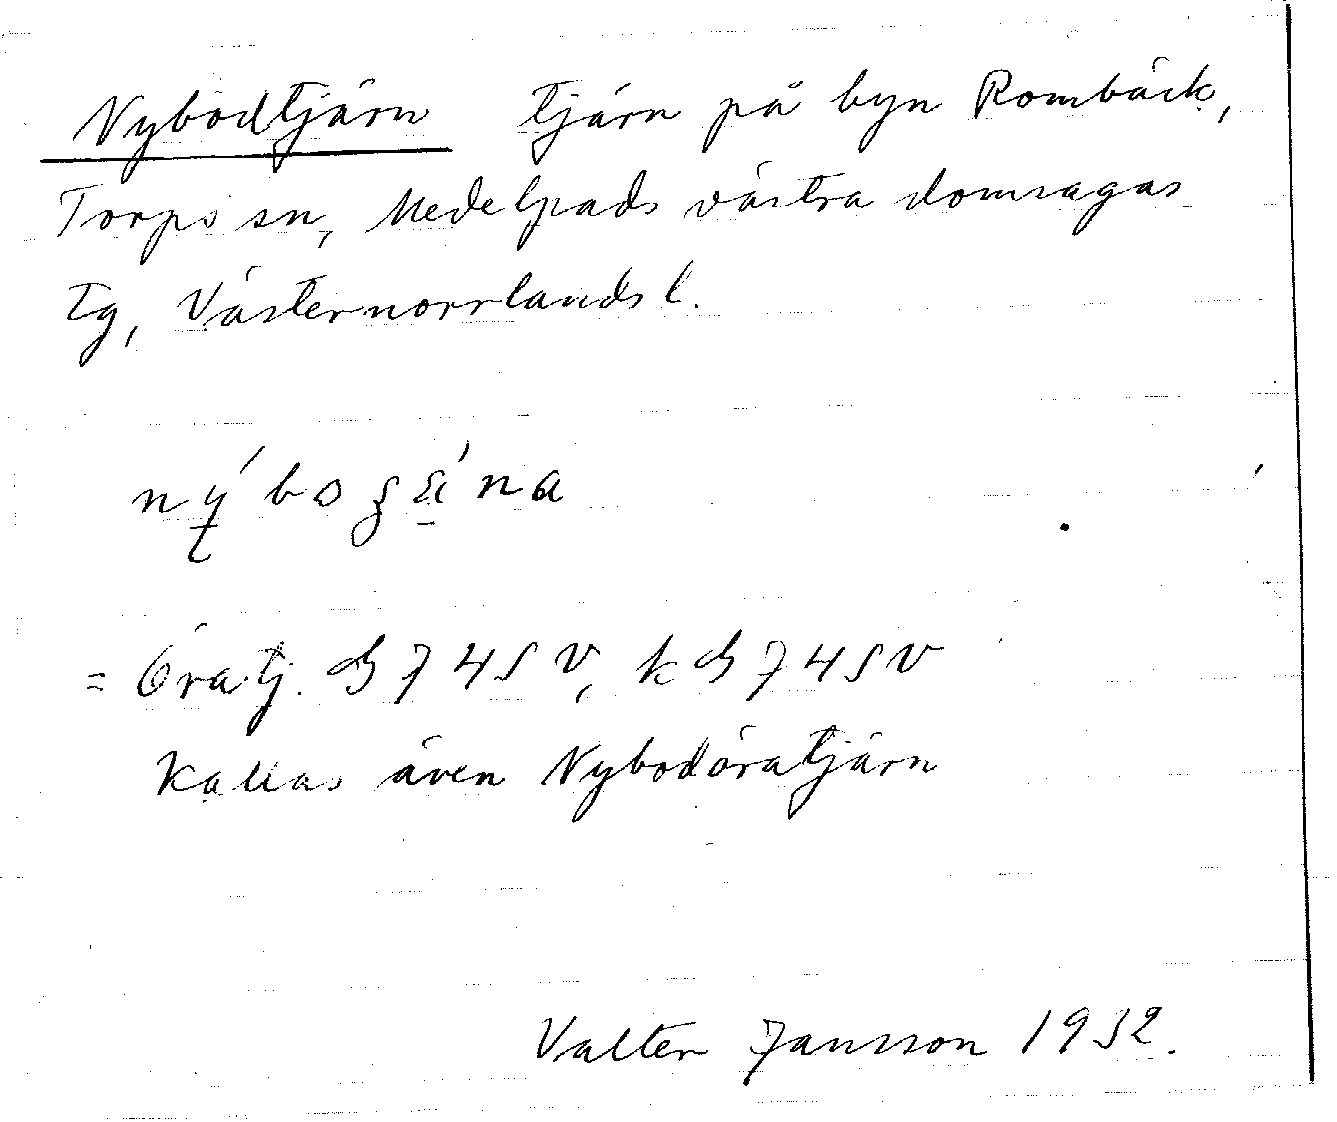 Nybodtjärn tjärn på byn Rombäck,
Torps sn, Medelpads västra domsagas
tg, Västernorrlands l.
= Öratj.
Kallas även Nybodöratjärn
Valter Jansson 1932.